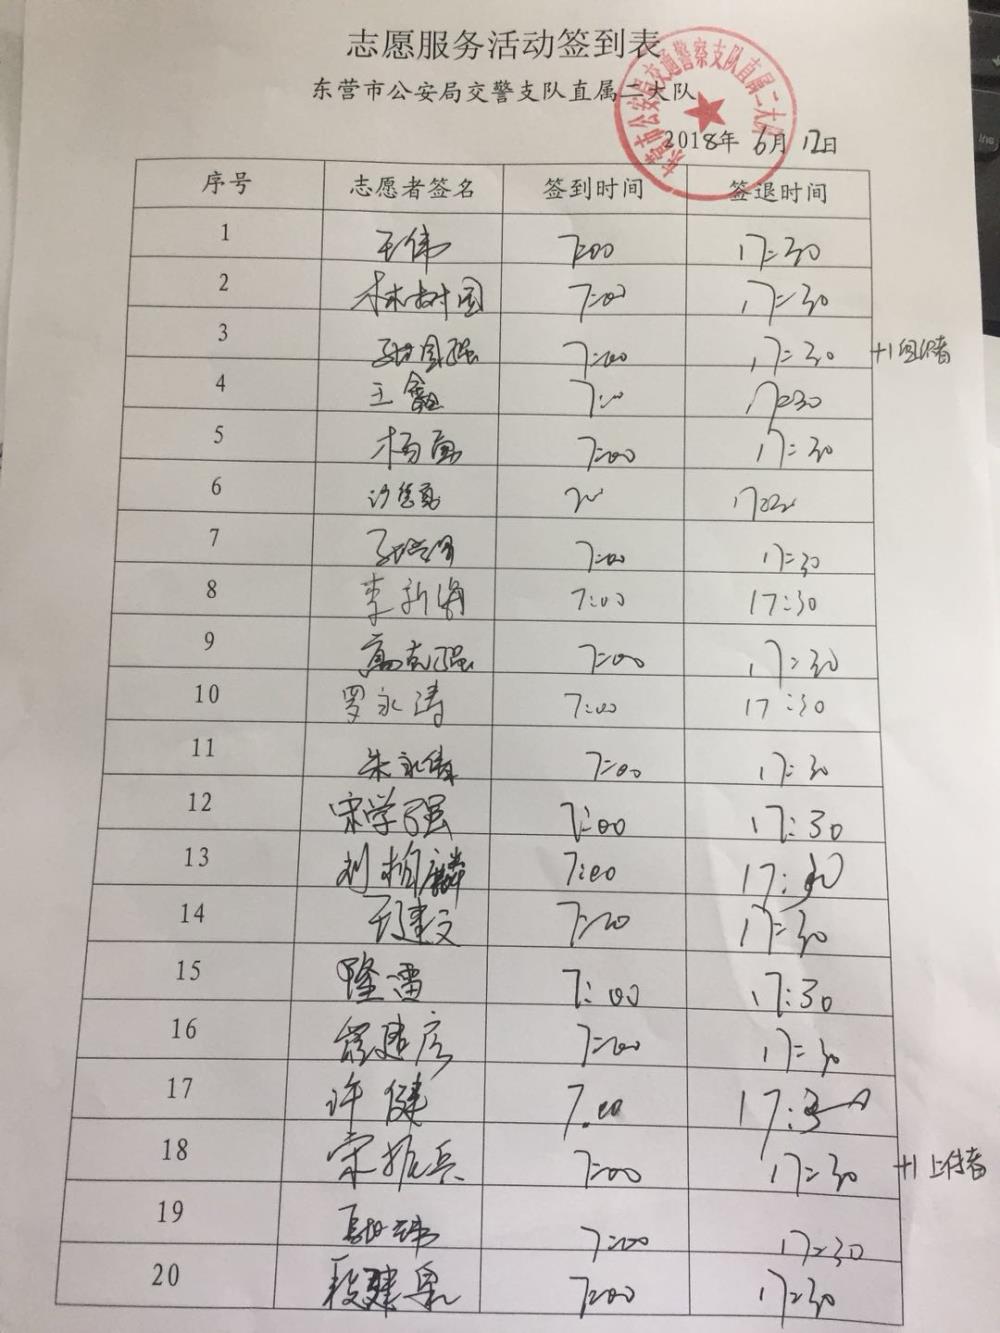 志愿服务活动签到表
东营市公安局交警支队直属二大队
东营市公安局交通警察支队直属二大队
2018年 6月 12日
序号 志愿者签名 签到时间 签退时间
1 王伟 7:00 17:30
2 林树国 7:00 17:30
3 7:00 17:30 +1组织者
4 王鑫 7:00 17:30
5 杨勇 7:00 17:30
6
7 7:00 17:30
8 李新海 7:00 17:30
9 高克强 7:00 17:30
10 罗永涛 7:00 17:30
11 朱永伟 7:00 17:30
12 宋学强 7:00 17:30
13 刘相麟 7:00 17:30
14 王建文 7:00 17:30
15 隆雷 7:00 17:30
16 7:00 17:30
17 许健 7:00 17:30
18 宋振兵 7:00 17:30 +1上传者
19 7:00 17:30
20 段建泉 7:00 17:30